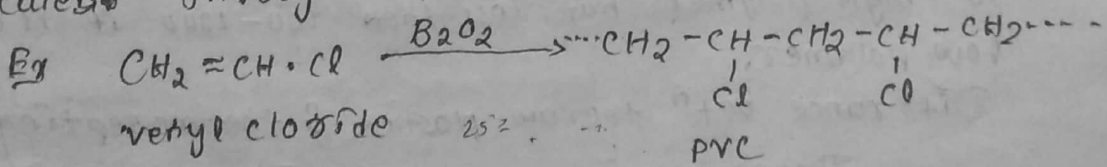 Ex CH2=CH·Cl B2O2 → ....CH2-CH-CH2-CH-CH2....
Cl Cl
venyl cloride
PVC